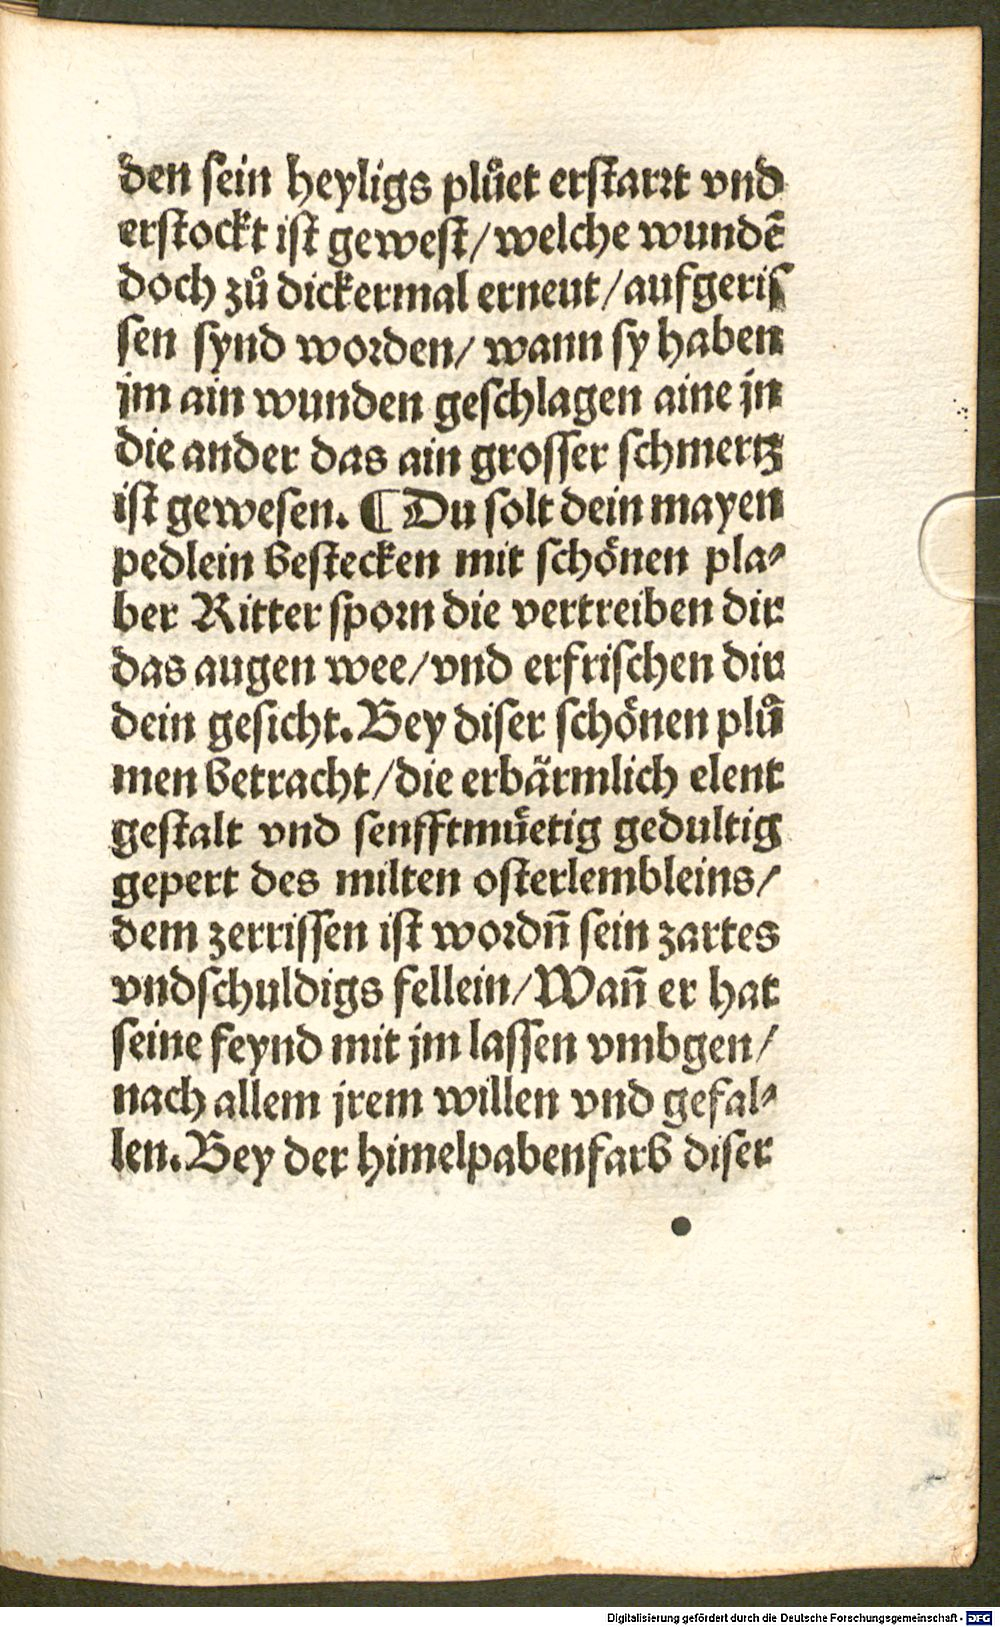 den sein heyligs plůet erstarrt vnd
erstockt ist gewest/welche wundē
doch zů dickermal erneut/aufgeris
sen synd worden/ wann sy haben
jm ain wunden geschlagen aine jn
die ander das ain grosser schmertz
ist gewesen. ¶ Du solt dein mayen
pedlein bestecken mit schönen pla⸗
ber Ritter sporn die vertreiben dir
das augen wee/vnd erfrischen dir
dein gesicht. Bey diser schönen plů
men betracht/die erbärmlich elent
gestalt vnd senfftmüetig gedultig
gepert des milten osterlembleins/
dem zerrissen ist wordn̄ sein zartes
vndschuldigs fellein/Wan̄ er hat
seine feynd mit jm lassen vmbgen/
nach allem jrem willen vnd gefal⸗
len. Bey der himelpabenfarb diser
Digitalisierung gefördert durch die Deutsche Forschungsgemeinschaft - DFG